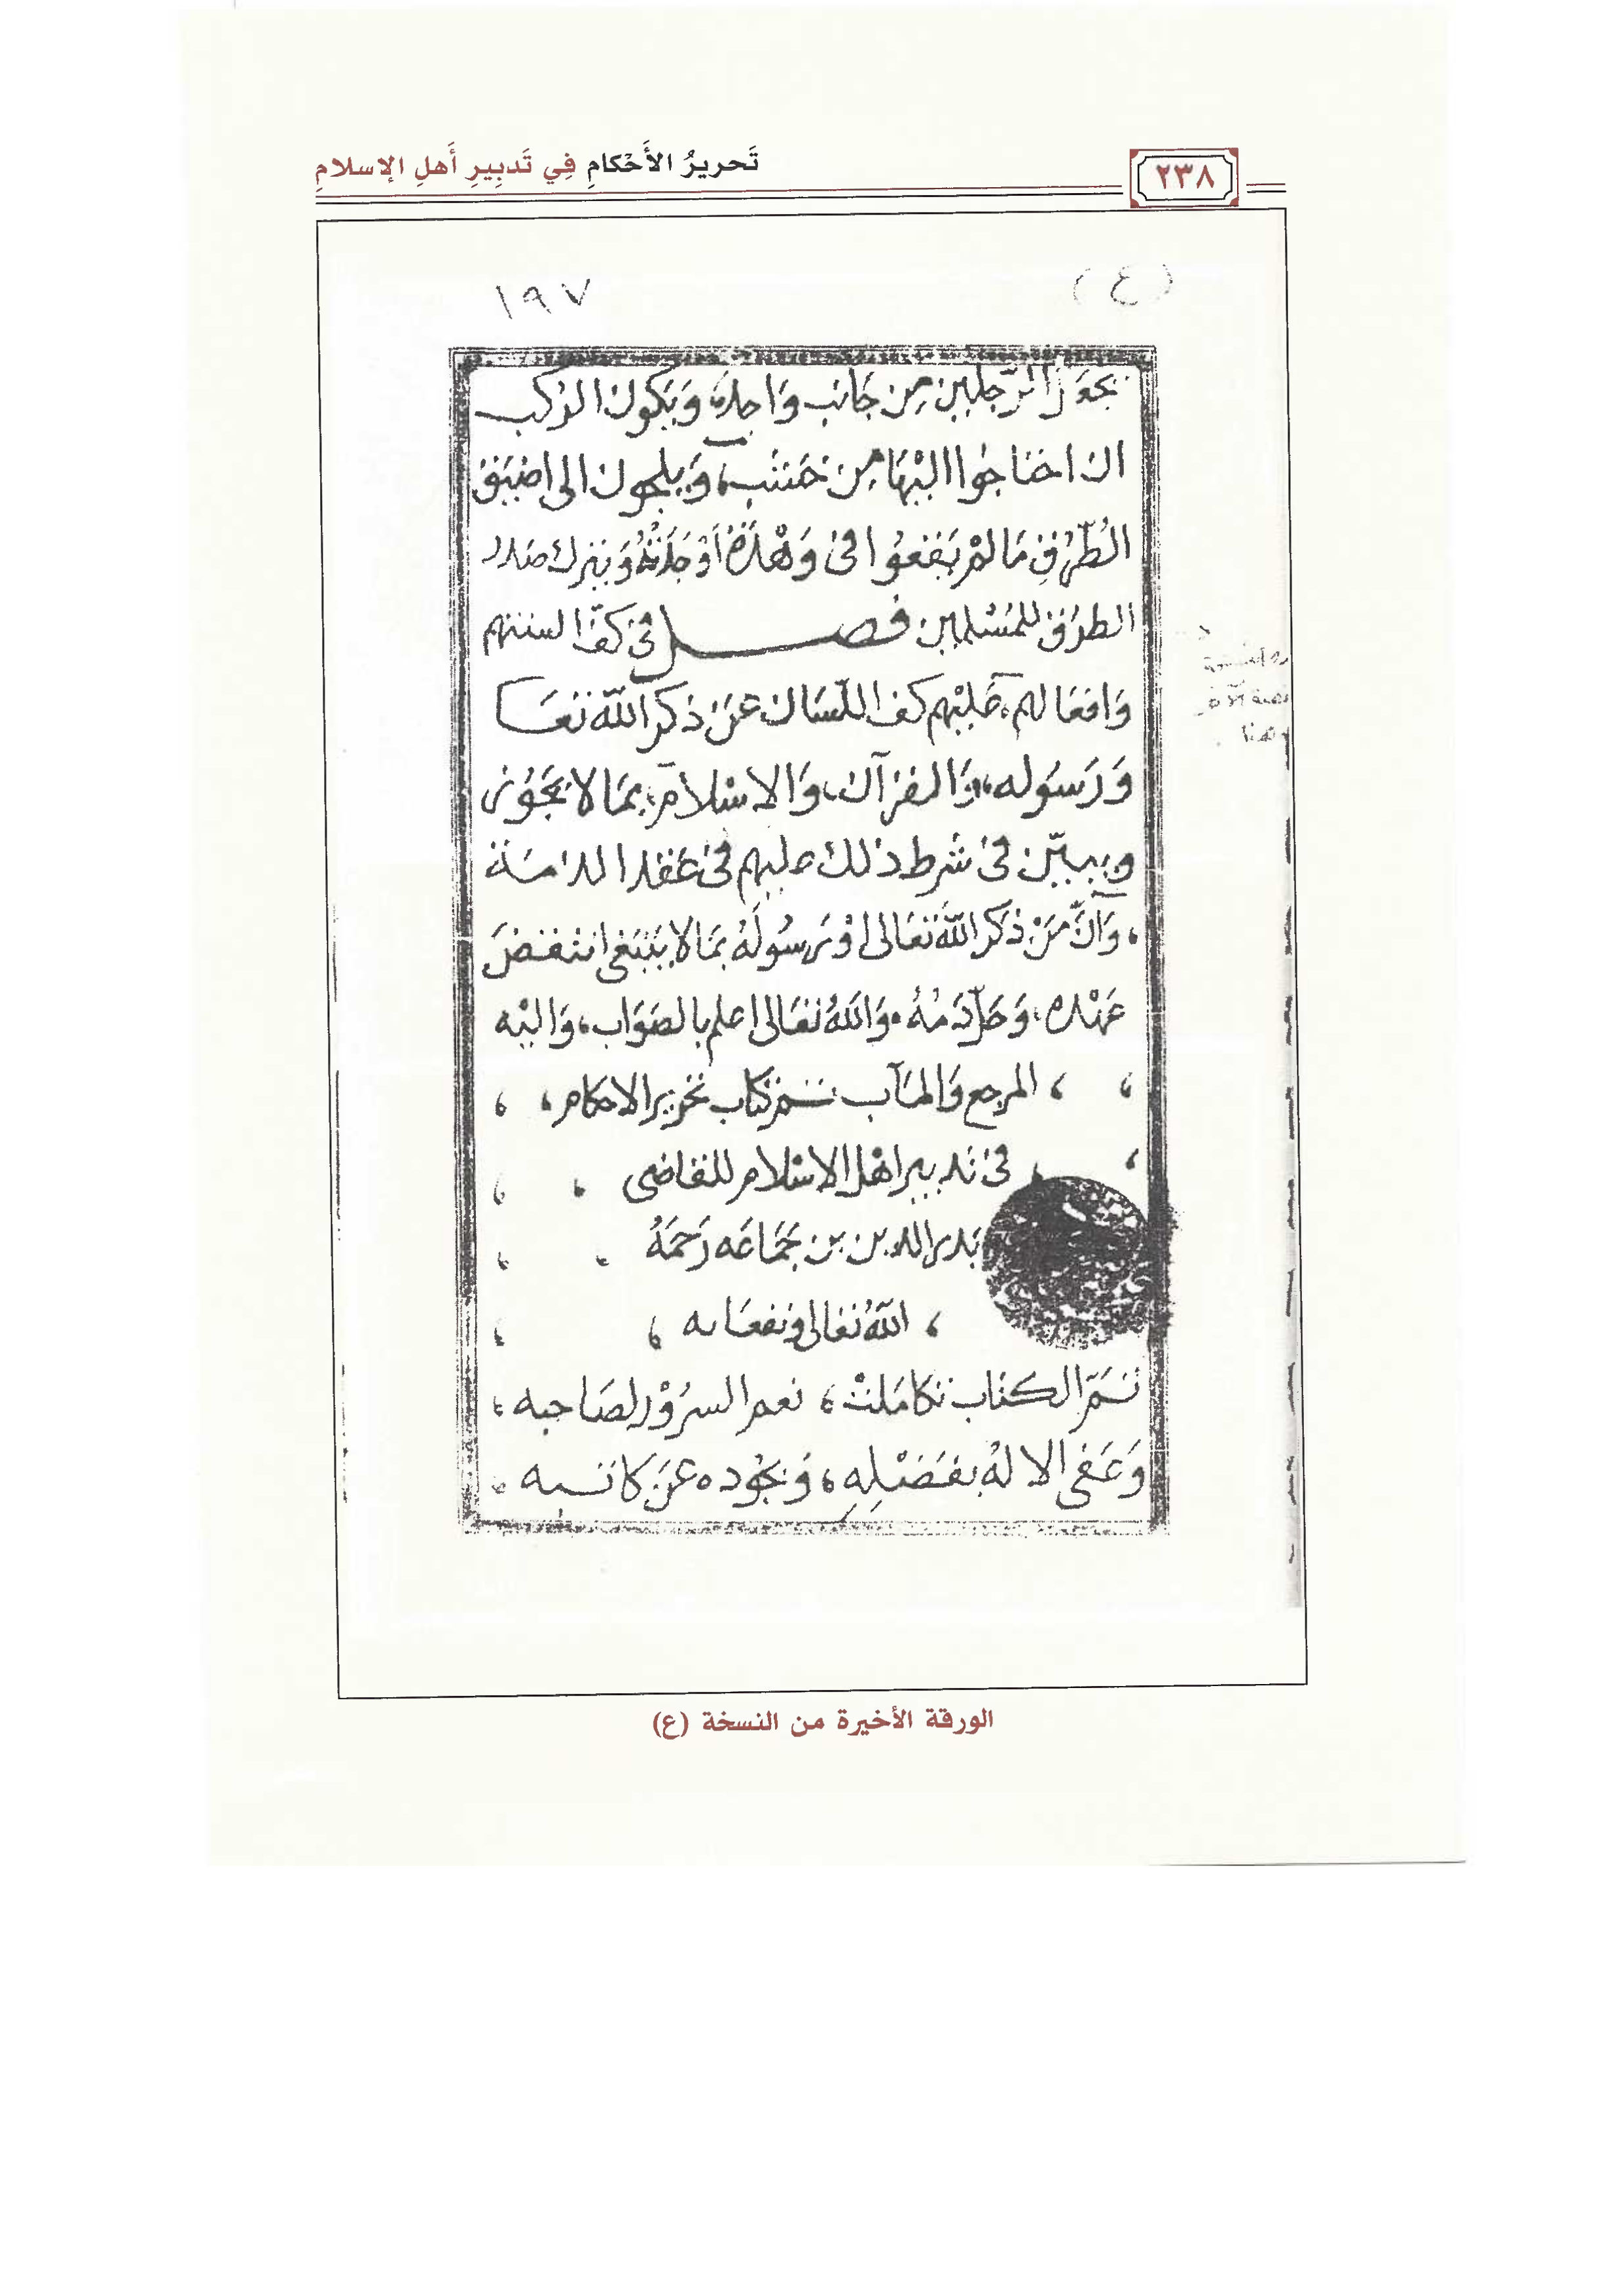 ٢٣٨
تَحريرُ الأَحْكامِ فِي تَدبِيرِ أَهلِ الإسلامِ
(ع)
١٩٧
بجعل الرّجلين من جَانب وَاحِدة وَيَكون الركب
ان احتاجوا اليْهَا من خشب، وَيلجون الى اضيَق
الطُرُق مَا لمْ يَقعُوا فى وَهْدَة اَوْ جَدَثة وَيترك صدر
الطرُق للمُسْلمين فصل فى كفّ السنتهم
وَافعَالهم، عَليْهم كف اللّسَان عَن ذكر اللّه تعَا
وَرَسوله، وَالقرآن، وَالاسْلام، بمَا لا يَجَوُز
ويبيّن فى شرط ذلك عليهم فى عَقد الذمَة
، وَاَنّ مَنْ ذكر اللّه تعَالى اوْ رسُولَهُ بمَا لا يَنبَغى انتقضَ
عَهْده، وَحَلّ دَمُهُ. وَاللّهُ تعَالى اعلم بالصَوَاب، وَاليْه
، المرجع وَالمآب تم كتاب تحرير الاحكام،
فى تدبير اهل الاسْلام للقاضى
بَدر الدين بن جَمَاعَه رَحمَهُ
، اللّهُ تعَالى ونفعَا به ،
تَمَّ الكتاب تكامَلتْ، نعم السرُوْر لصَاحبه،
وَعَفى الالهُ بفَضْلِهِ، وَبجُوده عَن كاتبه
الورقة الأخيرة من النسخة (ع)